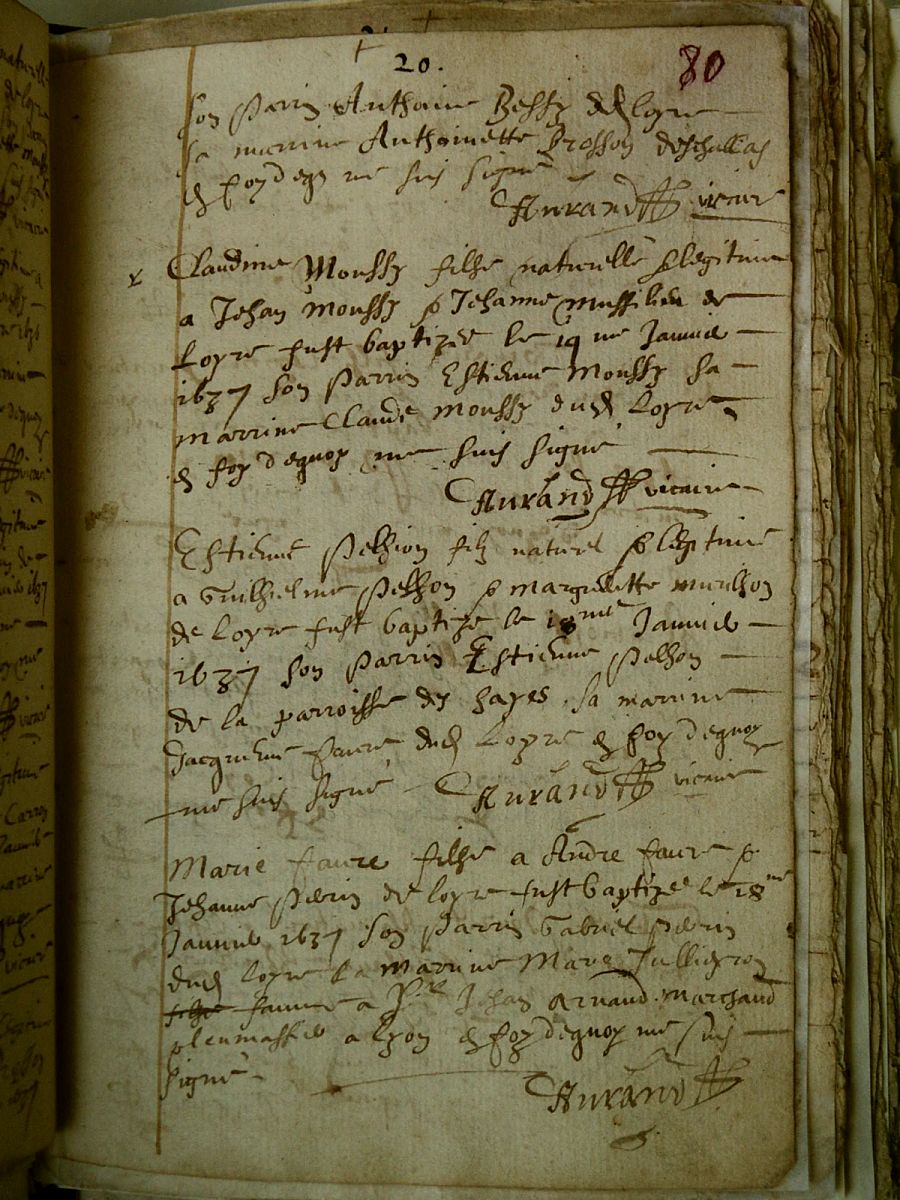 20.
80
son parrin Anthoine Bessy de loyre
sa marrine Anthoinette Brosson deschallas
en foy de quoy me suis signé
Aurand vicaire
Claudine Moussy filhe naturelle & legitime
a Jehan Moussy & Jehanne de
Loyre fust baptizée le 19 me Janvier
1637 son parrin Estienne Moussy sa
marrine Claude Moussy dud Loyre
en foy dequoy me suis signé
Aurand vicaire
Estienne Pelhon filz naturel & legitime
a Guilhelme Pelhon & Margueritte
de Loyre fust baptizé le Janvier
1637 son parrin Estienne Pelhon
de la parroisse des hayes sa marrine
Jacqueme faure dud Loyre en foy dequoy
me suis signé Aurand vicaire
Marie faure filhe a Andre faure &
Jehanne Perin de loyre fust baptizée le 18me
Janvier 1637 son parrin Gabriel Perin
dud Loyre la marrine Marie
famme a Jehan Arnaud marchand
a Lyon en foy dequoy me suis
signé
Aurand